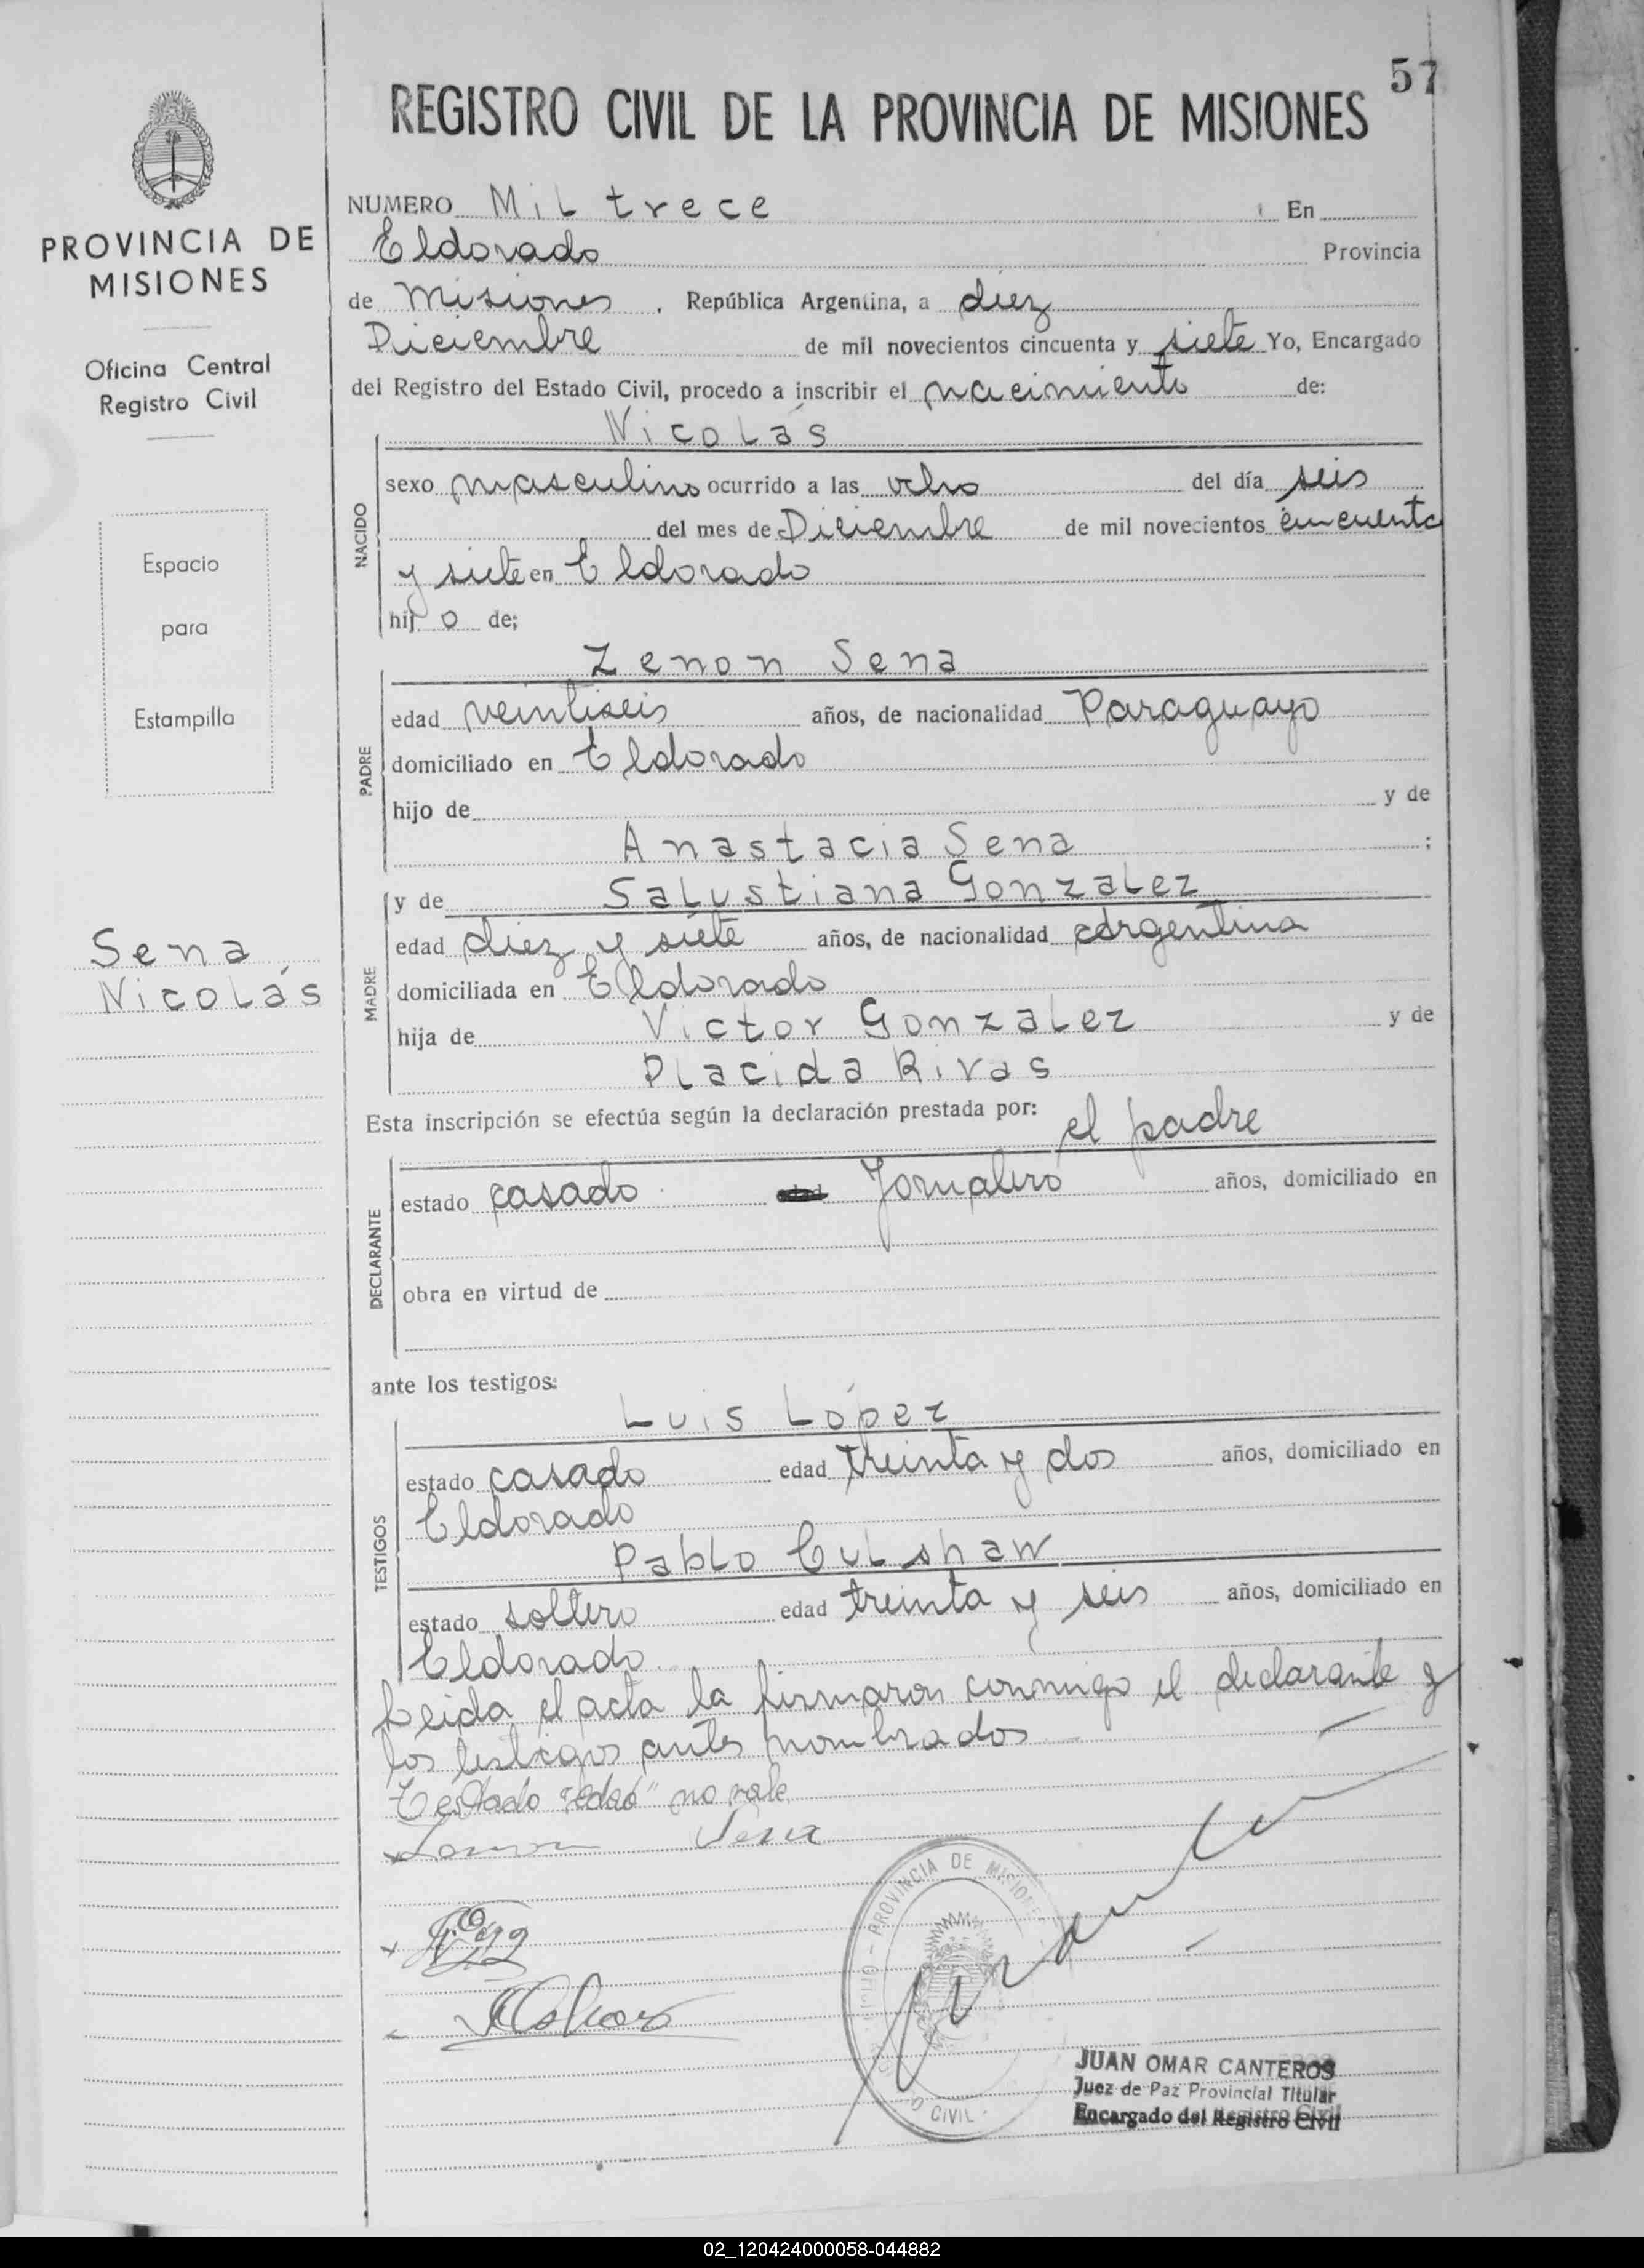 57
REGISTRO CIVIL DE LA PROVINCIA DE MISIONES
PROVINCIA DE
MISIONES
Oficina Central
Registro Civil
Espacio
para
Estampilla
Sena
Nicolás
NUMERO Mil trece En
Eldorado Provincia
de Misiones, República Argentina, a diez
Diciembre de mil novecientos cincuenta y siete Yo, Encargado
del Registro del Estado Civil, procedo a inscribir el nacimiento de:
Nicolás
NACIDO
sexo masculino ocurrido a las ocho del día seis
del mes de Diciembre de mil novecientos cincuenta
y siete en Eldorado
hijo de;
Zenon Sena
PADRE
edad veintiseis años, de nacionalidad Paraguayo
domiciliado en Eldorado
hijo de y de
Anastacia Sena ;
y de Salustiana Gonzalez
MADRE
edad diez y siete años, de nacionalidad Argentina
domiciliada en Eldorado
hija de Victor Gonzalez y de
Placida Rivas
Esta inscripción se efectúa según la declaración prestada por: el padre
DECLARANTE
estado casado Jornalero años, domiciliado en
obra en virtud de
ante los testigos:
Luis López
TESTIGOS
estado casado edad treinta y dos años, domiciliado en
Eldorado
Pablo Culshaw
estado soltero edad treinta y seis años, domiciliado en
Eldorado
Leida el acta la firmaron conmigo el declarante y
los testigos antes nombrados
Testado "edad" no vale
Sena
PROVINCIA DE MISIONES
CIVIL
JUAN OMAR CANTEROS
Juez de Paz Provincial Titular
Encargado del Registro Civil
02_120424000058-044882